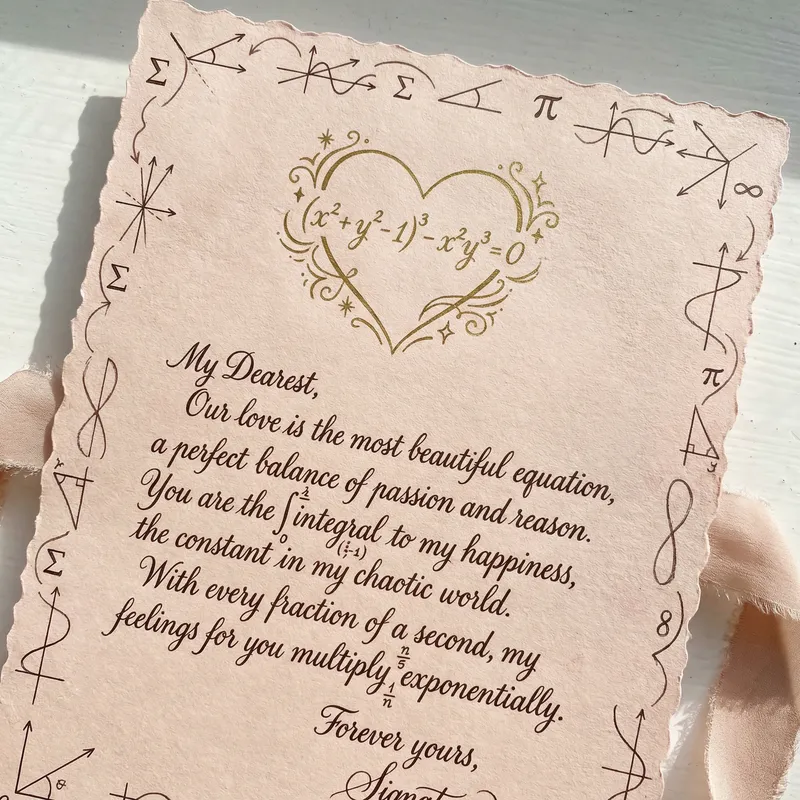 (x²+y²-1)³-x²y³=0
My Dearest,
Our love is the most beautiful equation,
a perfect balance of passion and reason.
You are the ∫integral to my happiness,
the constant in my chaotic world.
With every fraction of a second, my
feelings for you multiply exponentially.
Forever yours,